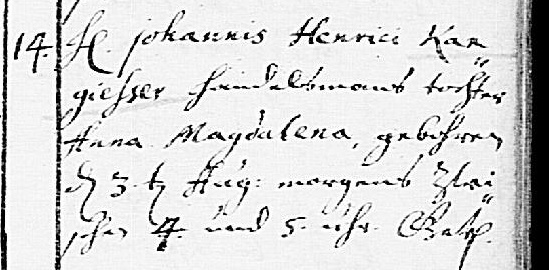 14. H. Johannis Henrici Kan„
giesser handelsmans tochter
Anna Magdalena, gebohren
d 3.t Aug: morgens Zwi„
schen 4. und 5. uhr.